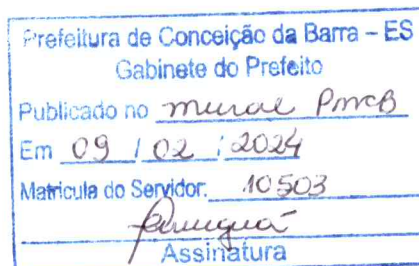 Prefeitura de Conceição da Barra – ES
Gabinete do Prefeito
Publicado no mural PMCB
Em 09 / 02 / 2024
Matricula do Servidor: 10503
Assinatura